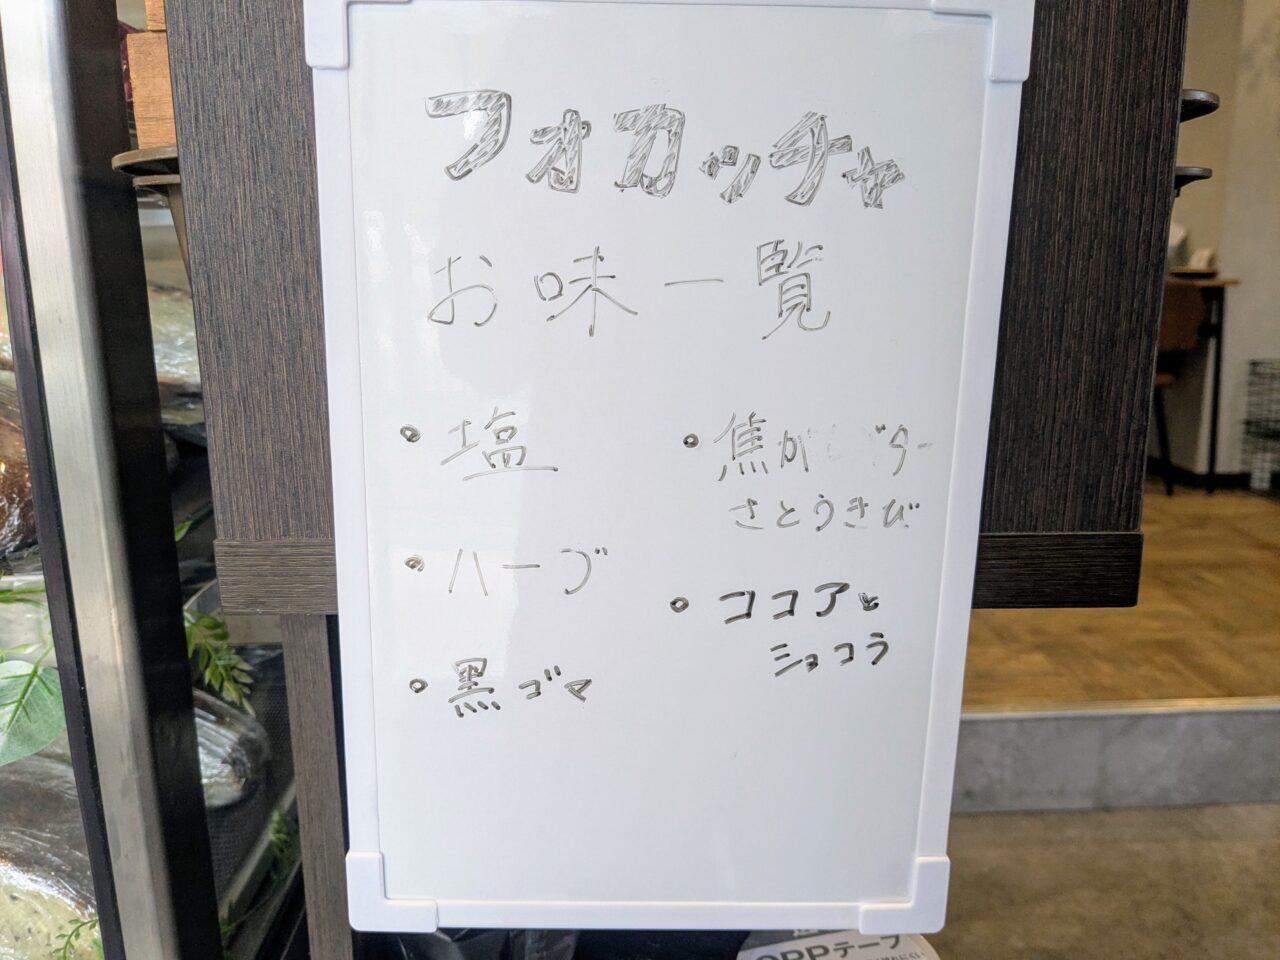 フォカッチャ
お味一覧
• 塩
• ハーブ
• 黒ゴマ
• 焦が バター
さとうきび
• ココアと
ショコラ
OPPテープ